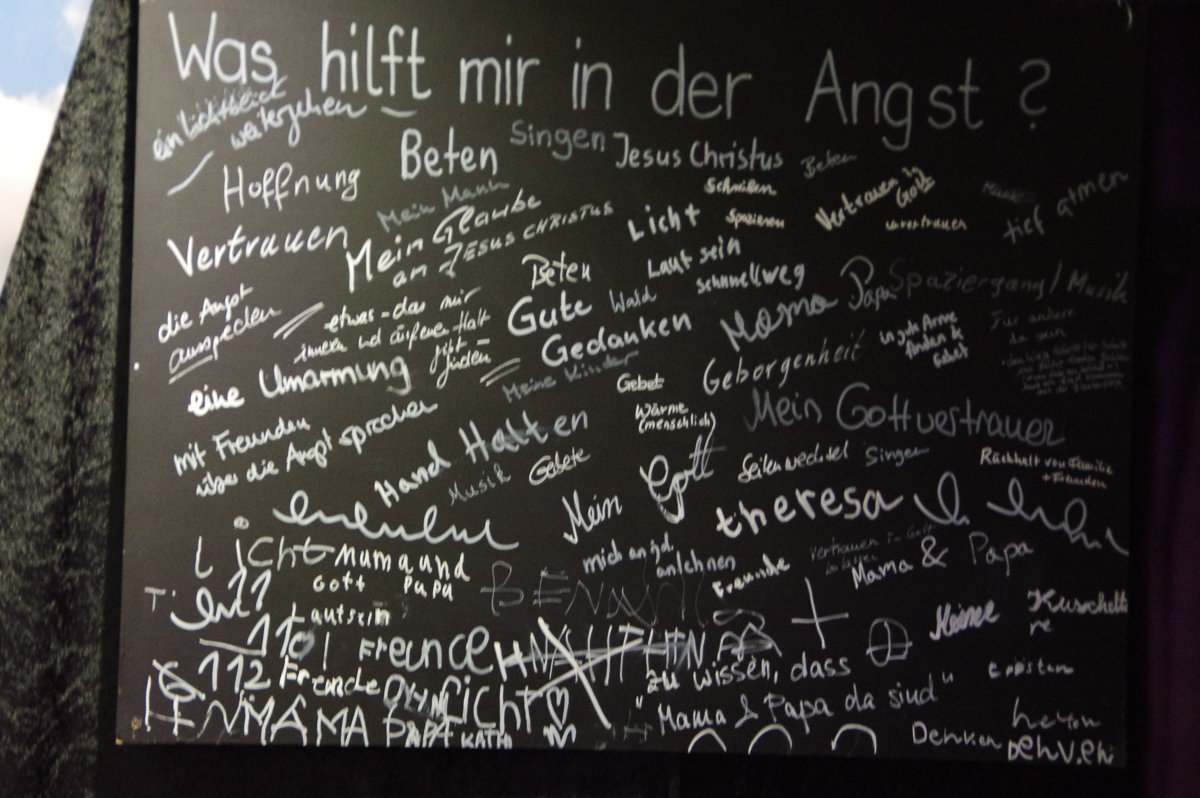 Was hilft mir in der Angst ?
ein Lichtblick
weitergehen
Hoffnung
Beten
Singen
Jesus Christus
Beten
Vertrauen
Mein Mann
Mein Glaube
an JESUS CHRISTUS
Schreiben
Licht
Spazieren
Vertrauen in
Gott
urvertrauen
Musik
tief atmen
die Angst
ausreden
etwas - das mir
inneren und äußeren Halt
gibt
finden
Beten
Gute
Gedanken
Wald
Laut sein
schnellweg
Mama Papa
Spaziergang / Musik
eine Umarmung
Meine Kinder
Gebet
Geborgenheit
in gute Arme
finden &
Gebet
Für andere
da sein
mit Freunden
über die Angst sprechen
Hand Halten
Wärme
(menschlich)
Mein Gottvertrauen
Musik
Gebete
Mein Gott
Seitenwechsel
Singen
Rückhalt von Familie
+ Freunden
theresa
Licht
Mama und
Gott Papa
mich an jd.
anlehnen
Freunde
Vertrauen in Gott
Mama & Papa
11
Lautsein
110
Freunce
Meine
Kuschelti
re
112
Freunde
Licht
"zu wissen, dass
Mama & Papa da sind"
trösten
MAMA PAPA
KATHI
Denken